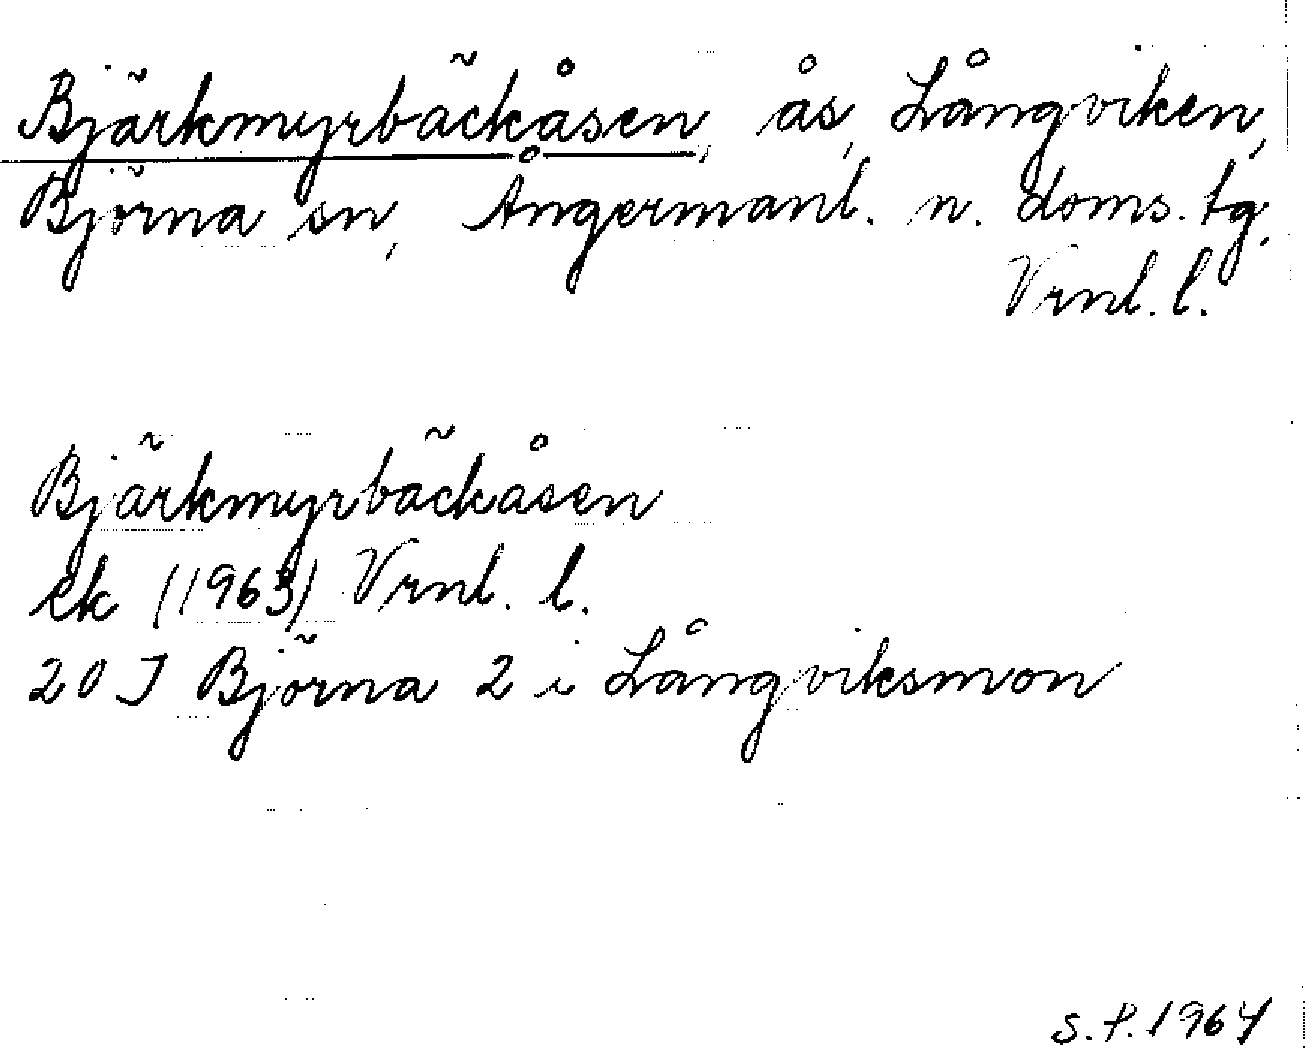 Bjärkmyrbäckåsen, ås, Långviken,
Björna sn, Ångermanl. n. doms. tg,
Vrnl. l.
Bjärkmyrbäckåsen
ek (1963) Vrnl. l.
20 J Björna 2 i Långviksmon
S.P. 1964